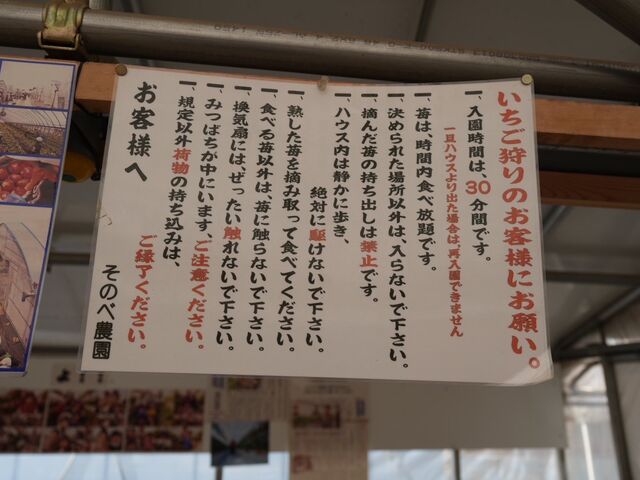 いちご狩りのお客様にお願い。
一、入園時間は、30分間です。
一旦ハウスより出た場合は、再入園できません
一、苺は、時間内食べ放題です。
一、決められた場所以外は、入らないで下さい。
一、摘んだ苺の持ち出しは禁止です。
一、ハウス内は静かに歩き、
絶対に駆けないで下さい。
一、熟した苺を摘み取って食べてください。
一、食べる苺以外は、苺に触らないで下さい。
一、換気扇には、ぜったい触れないで下さい。
一、みつばちが中にいます、ご注意ください。
一、規定以外荷物の持ち込みは、
ご縁了ください。
お客様へ
そのべ農園